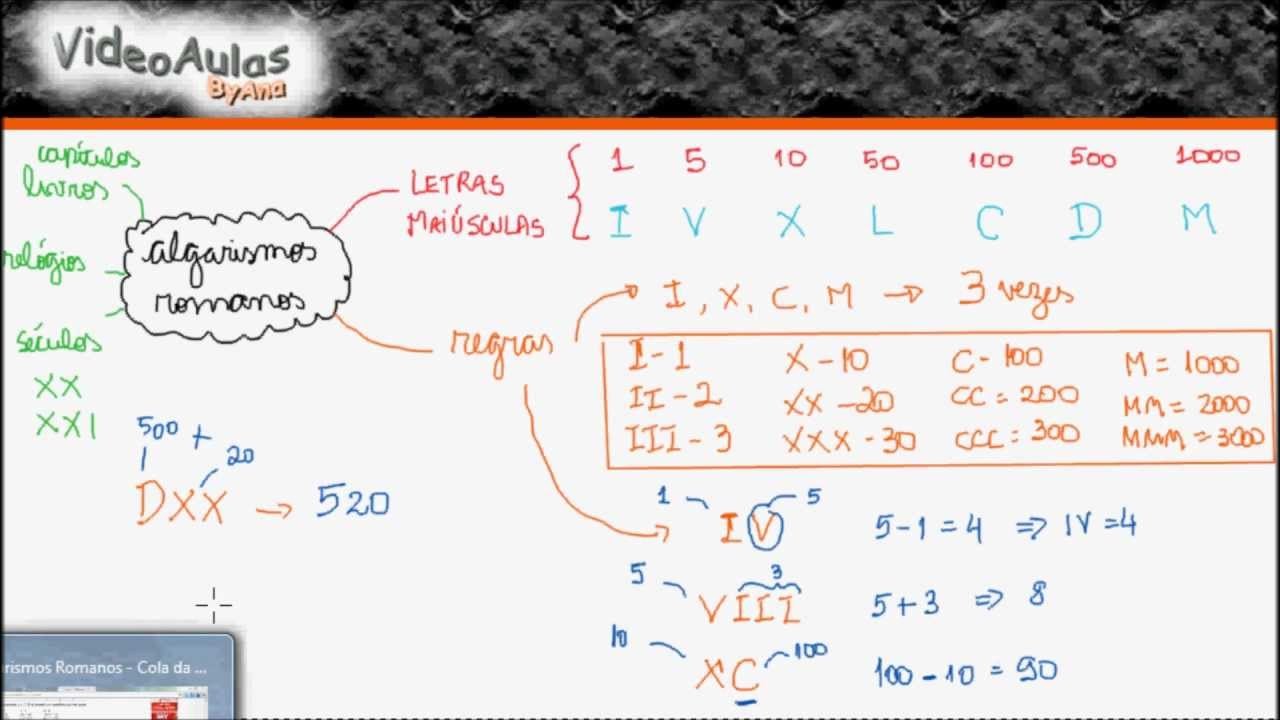 VideoAulas
ByAna
capítulos
livros
relógios
séculos
XX
XXI
algarismos
romanos
LETRAS
MAIÚSCULAS
1 5 10 50 100 500 1000
I V X L C D M
regras
I, X, C, M → 3 vezes
I - 1 X - 10 C - 100 M = 1000
II - 2 XX - 20 CC = 200 MM = 2000
III - 3 XXX - 30 CCC = 300 MMM = 3000
500 + 20
DXX → 520
1 5
IV 5 - 1 = 4 ⇒ IV = 4
5 3
VIII 5 + 3 ⇒ 8
10 100
XC 100 - 10 = 90
rismos Romanos - Cola da ...